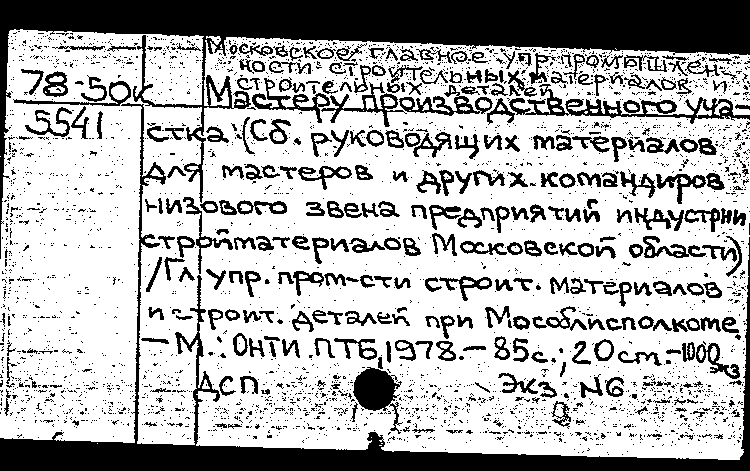 Московское главное упр. промышлен-
ности строительных материалов и
строительных деталей
78-50к Мастеру производственного уча-
5541 стка: (Сб. руководящих материалов
для мастеров и других командиров
низового звена предприятий индустрии
стройматериалов Московской области)
/Гл. упр. пром-сти строит. материалов
и строит. деталей при Мособлисполкоме.
— М.: ОНТИ ПТБ, 1978. — 85с.; 20 см. — 1000 экз
ДСП. Экз. №6.